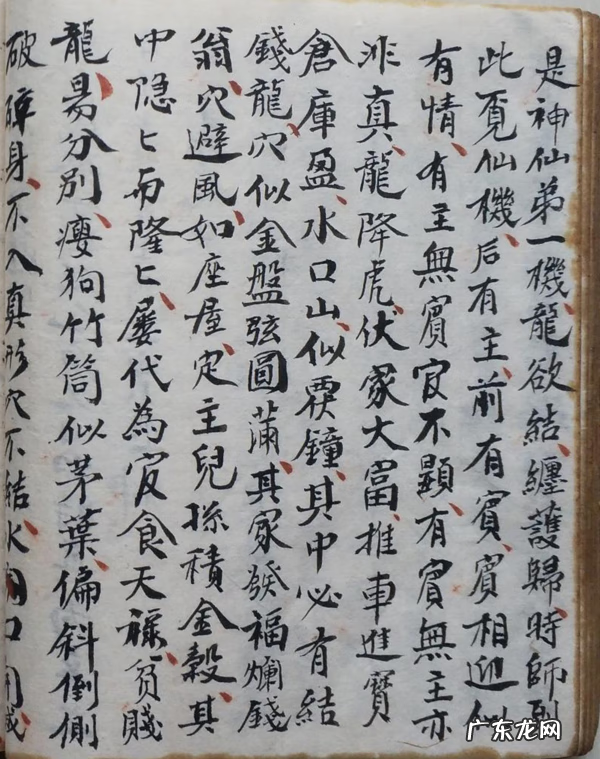 是神仙第一機、龍欲結、纏護歸、時師到
此覔仙機、后有主、前有賓、賓相迎似
有情、有主無賓官不顯、有賓無主亦
非真、龍降虎伏家大富、推車進寶
倉庫盈、水口山、似覆鐘、其中必有結
錢龍、穴似金盤弦圓蒲、其家發福爛錢
翁、穴避風、如座屋、定主兒孫積金穀、其
中隐匕而隆匕、屡代為官食天祿、貧賤
龍、易分别、瘻狗竹筒似茅葉、偏斜倒側
破碎身、不入真形穴不結、水口
广东龙网